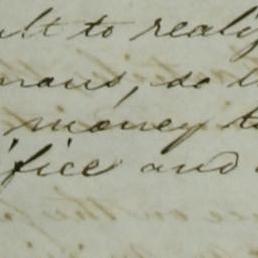 ult to realiz
mans, so
money t
ifice and